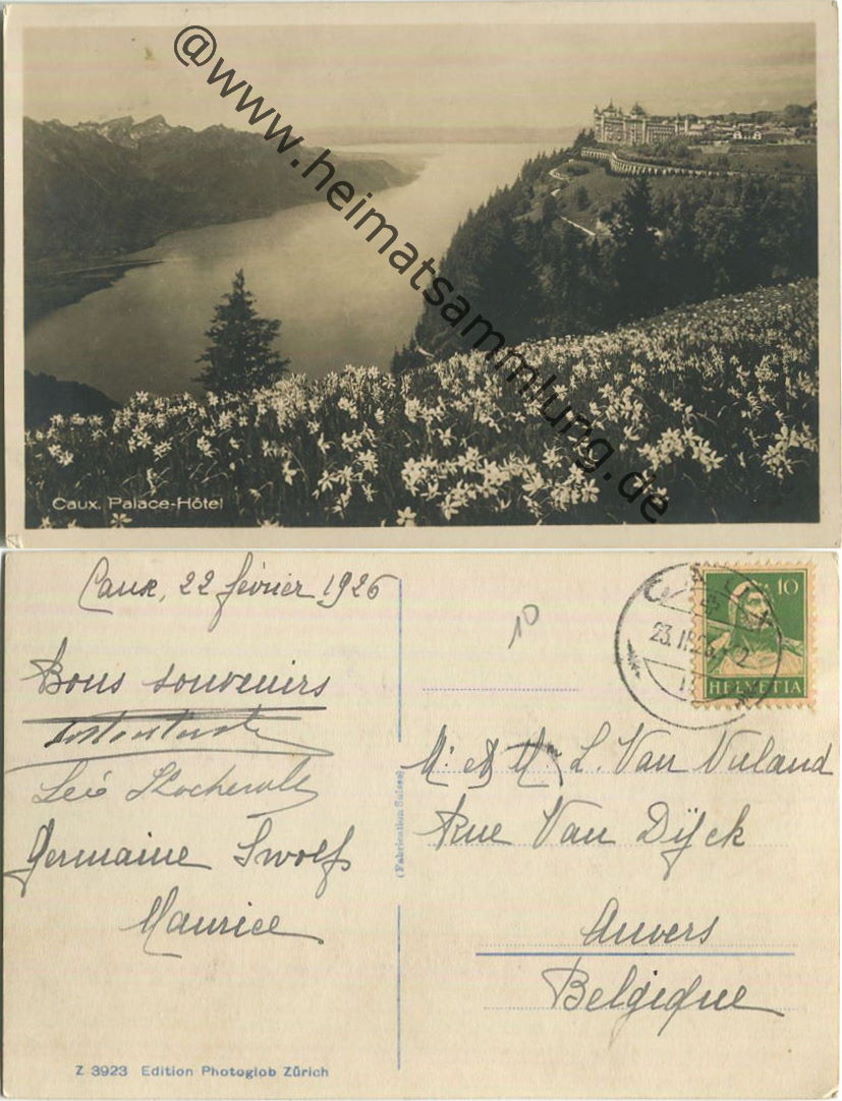 @www.heimatsammlung.de
Caux. Palace-Hôtel
Caux, 22 février 1926
Bons souvenirs
Léo
Germaine Swolfs
Maurice
10
CAUX
23.II.26.
10
HELVETIA
Mr & Mme L. Van Nuland
Rue Van Dijck
Anvers
Belgique
(Fabrication Suisse)
Z 3923 Edition Photoglob Zürich